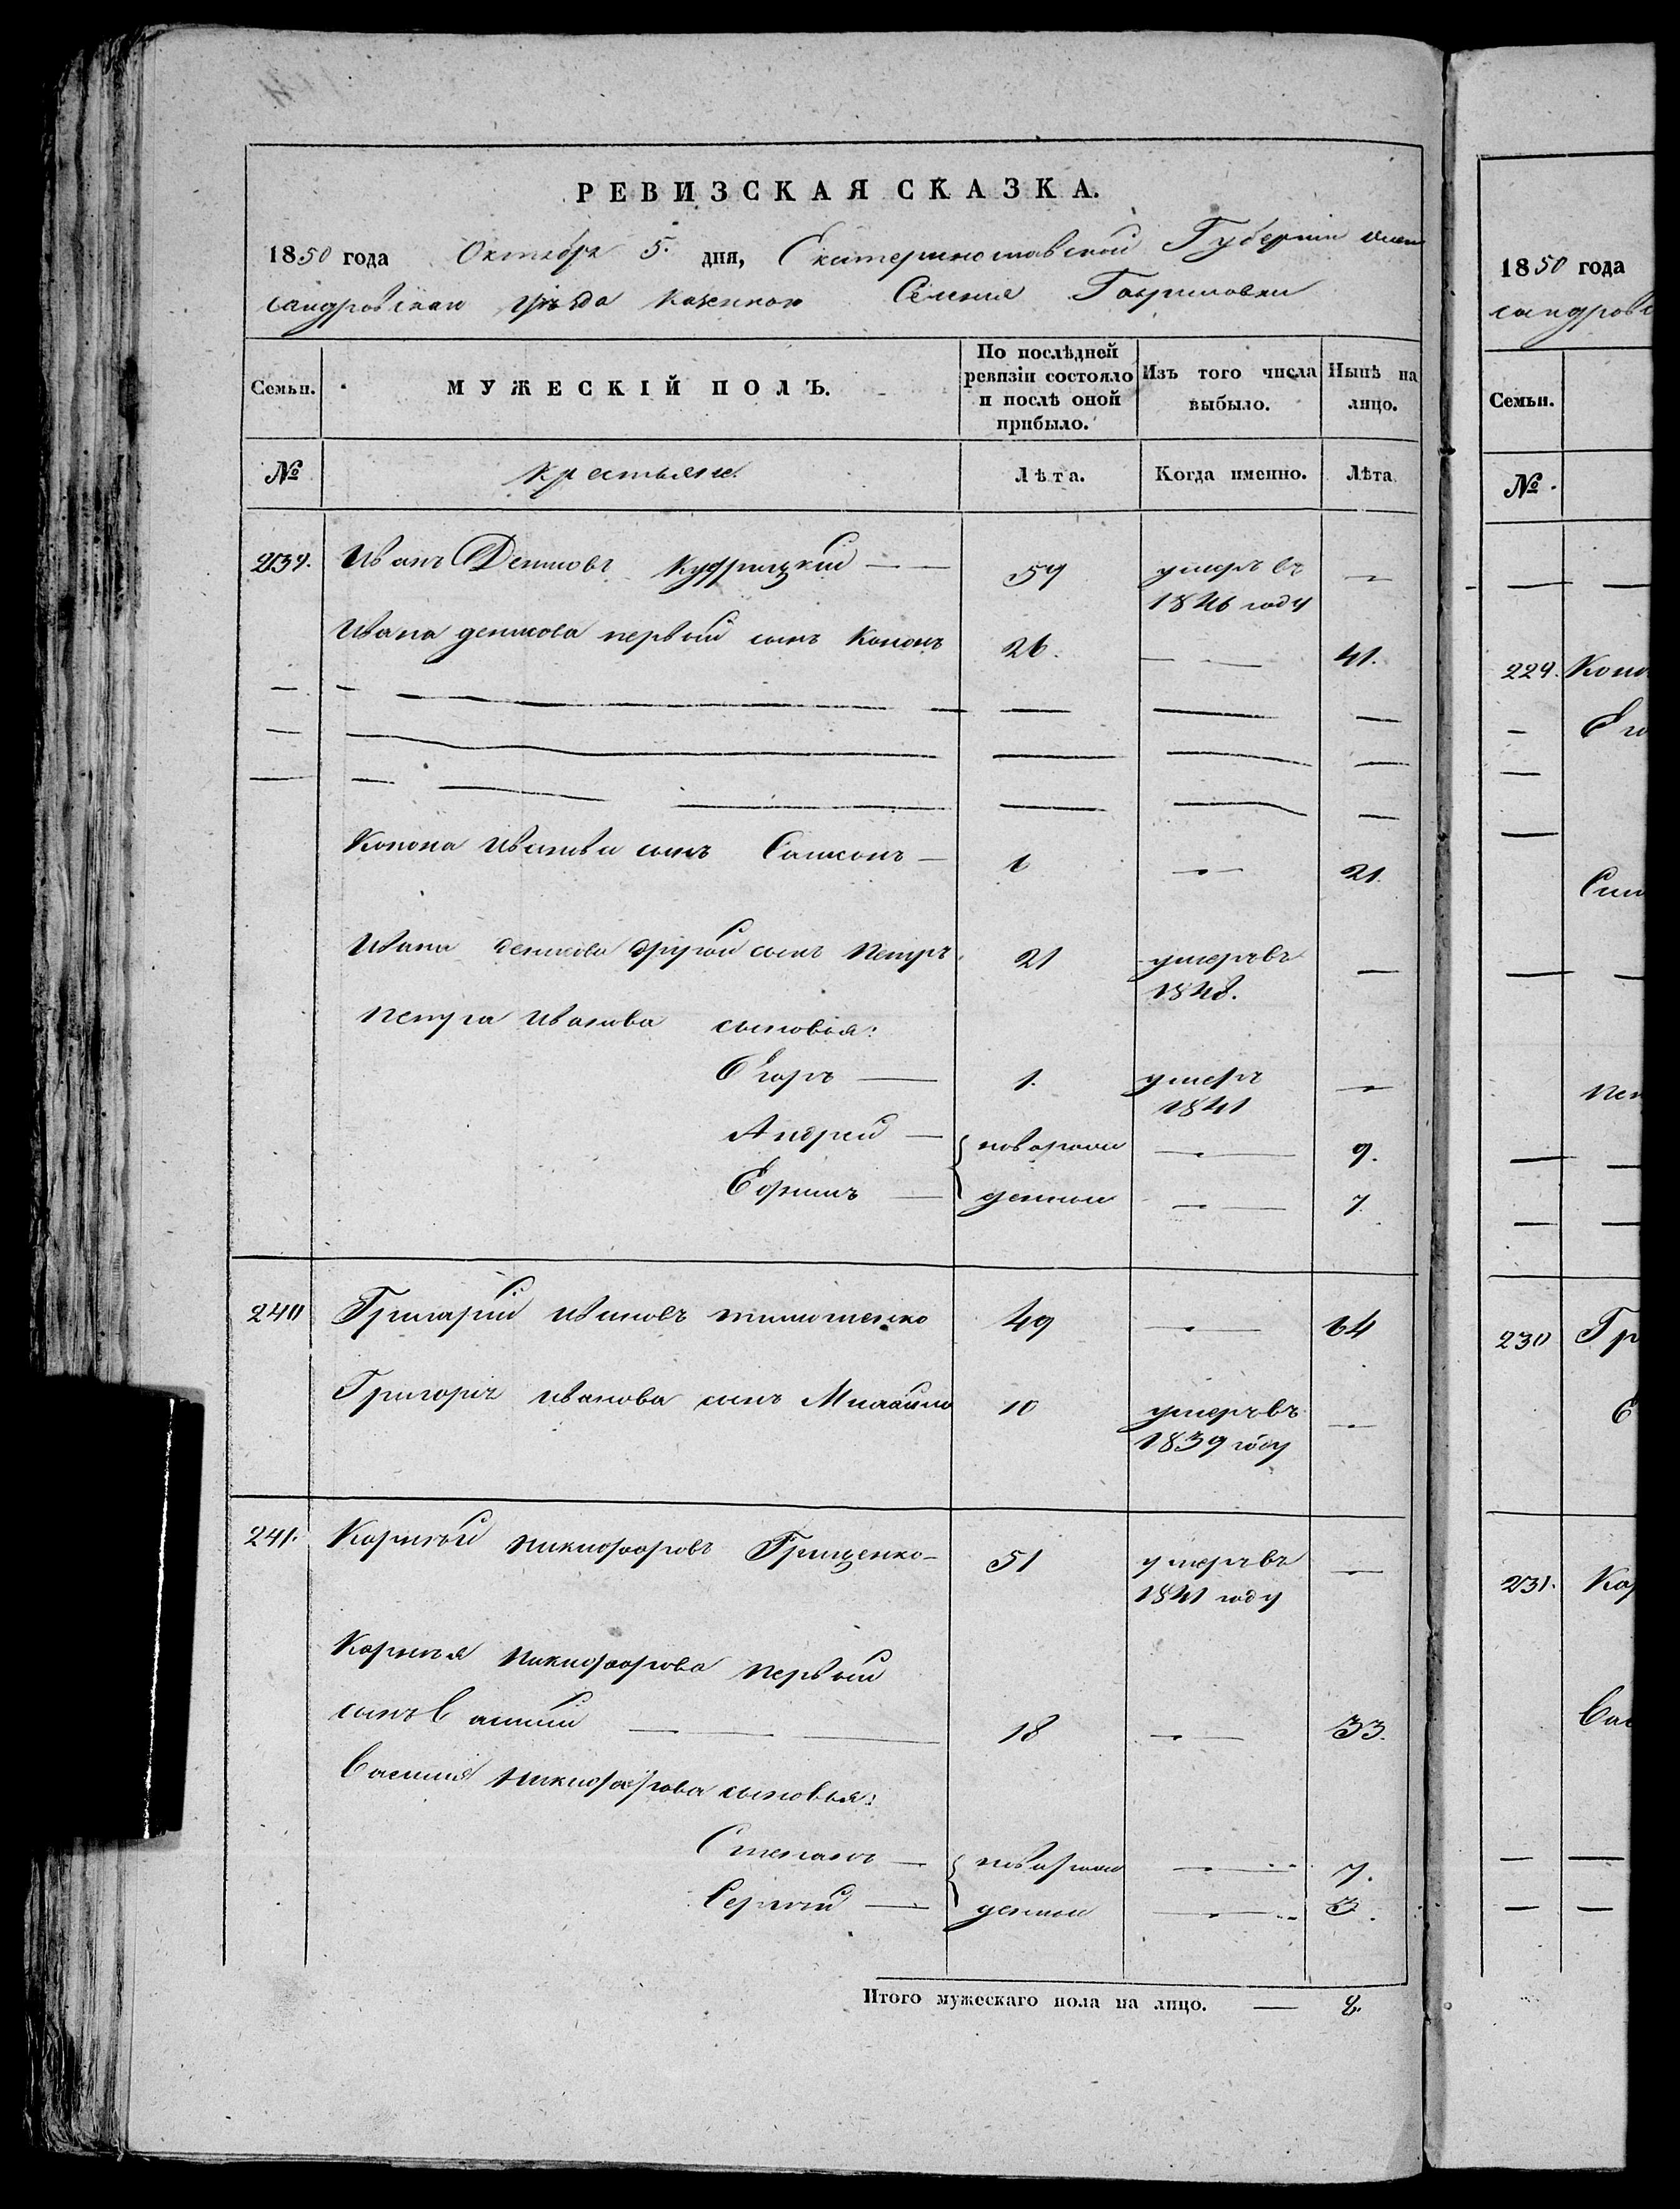 РЕВИЗСКАЯ СКАЗКА.
1850 года Октября 5. дня, Екатеринославской Губерніи Алек
сандровскаго уѣзда казеннаго Селенія Гавриловки
Семьи. МУЖЕСКІЙ ПОЛЪ. По послѣдней ревизіи состояло и послѣ оной прибыло. Изъ того числа выбыло. Нынѣ на лицо.
№ крестьяне Лѣта. Когда именно. Лѣта
239. Иванъ Денисовъ 59 умеръ въ —
1846 году
Ивана денисова первый сынъ Кононъ 26. — 41.
Конона Иванова сынъ Самсонъ — 6 — 21.
Ивана денисова другой сынъ Петръ 21 умеръ въ —
1848.
Петра Иванова сыновья:
Егоръ — 1. умеръ —
1841
Андрей — новорож — 9.
Ефимъ — денные — 7
240 Григорій Ивановъ тимошенко 49 — 64
Григорія Иванова сынъ Михайло 10 умеръ въ —
1839 году
241. Корнѣй никифоровъ Грищенко — 51 умеръ въ —
1841 году
Корнѣя никифорова первый
сынъ Василій — 18 — 33.
Василія никифорова сыновья:
Степанъ — новорож — 7.
Сергѣй — денные — 3.
Итого мужескаго пола на лицо. — 8.
1850 года
сандровс
Семьи.
№.
229. Коно
230 Гр
231. Кор
Вас